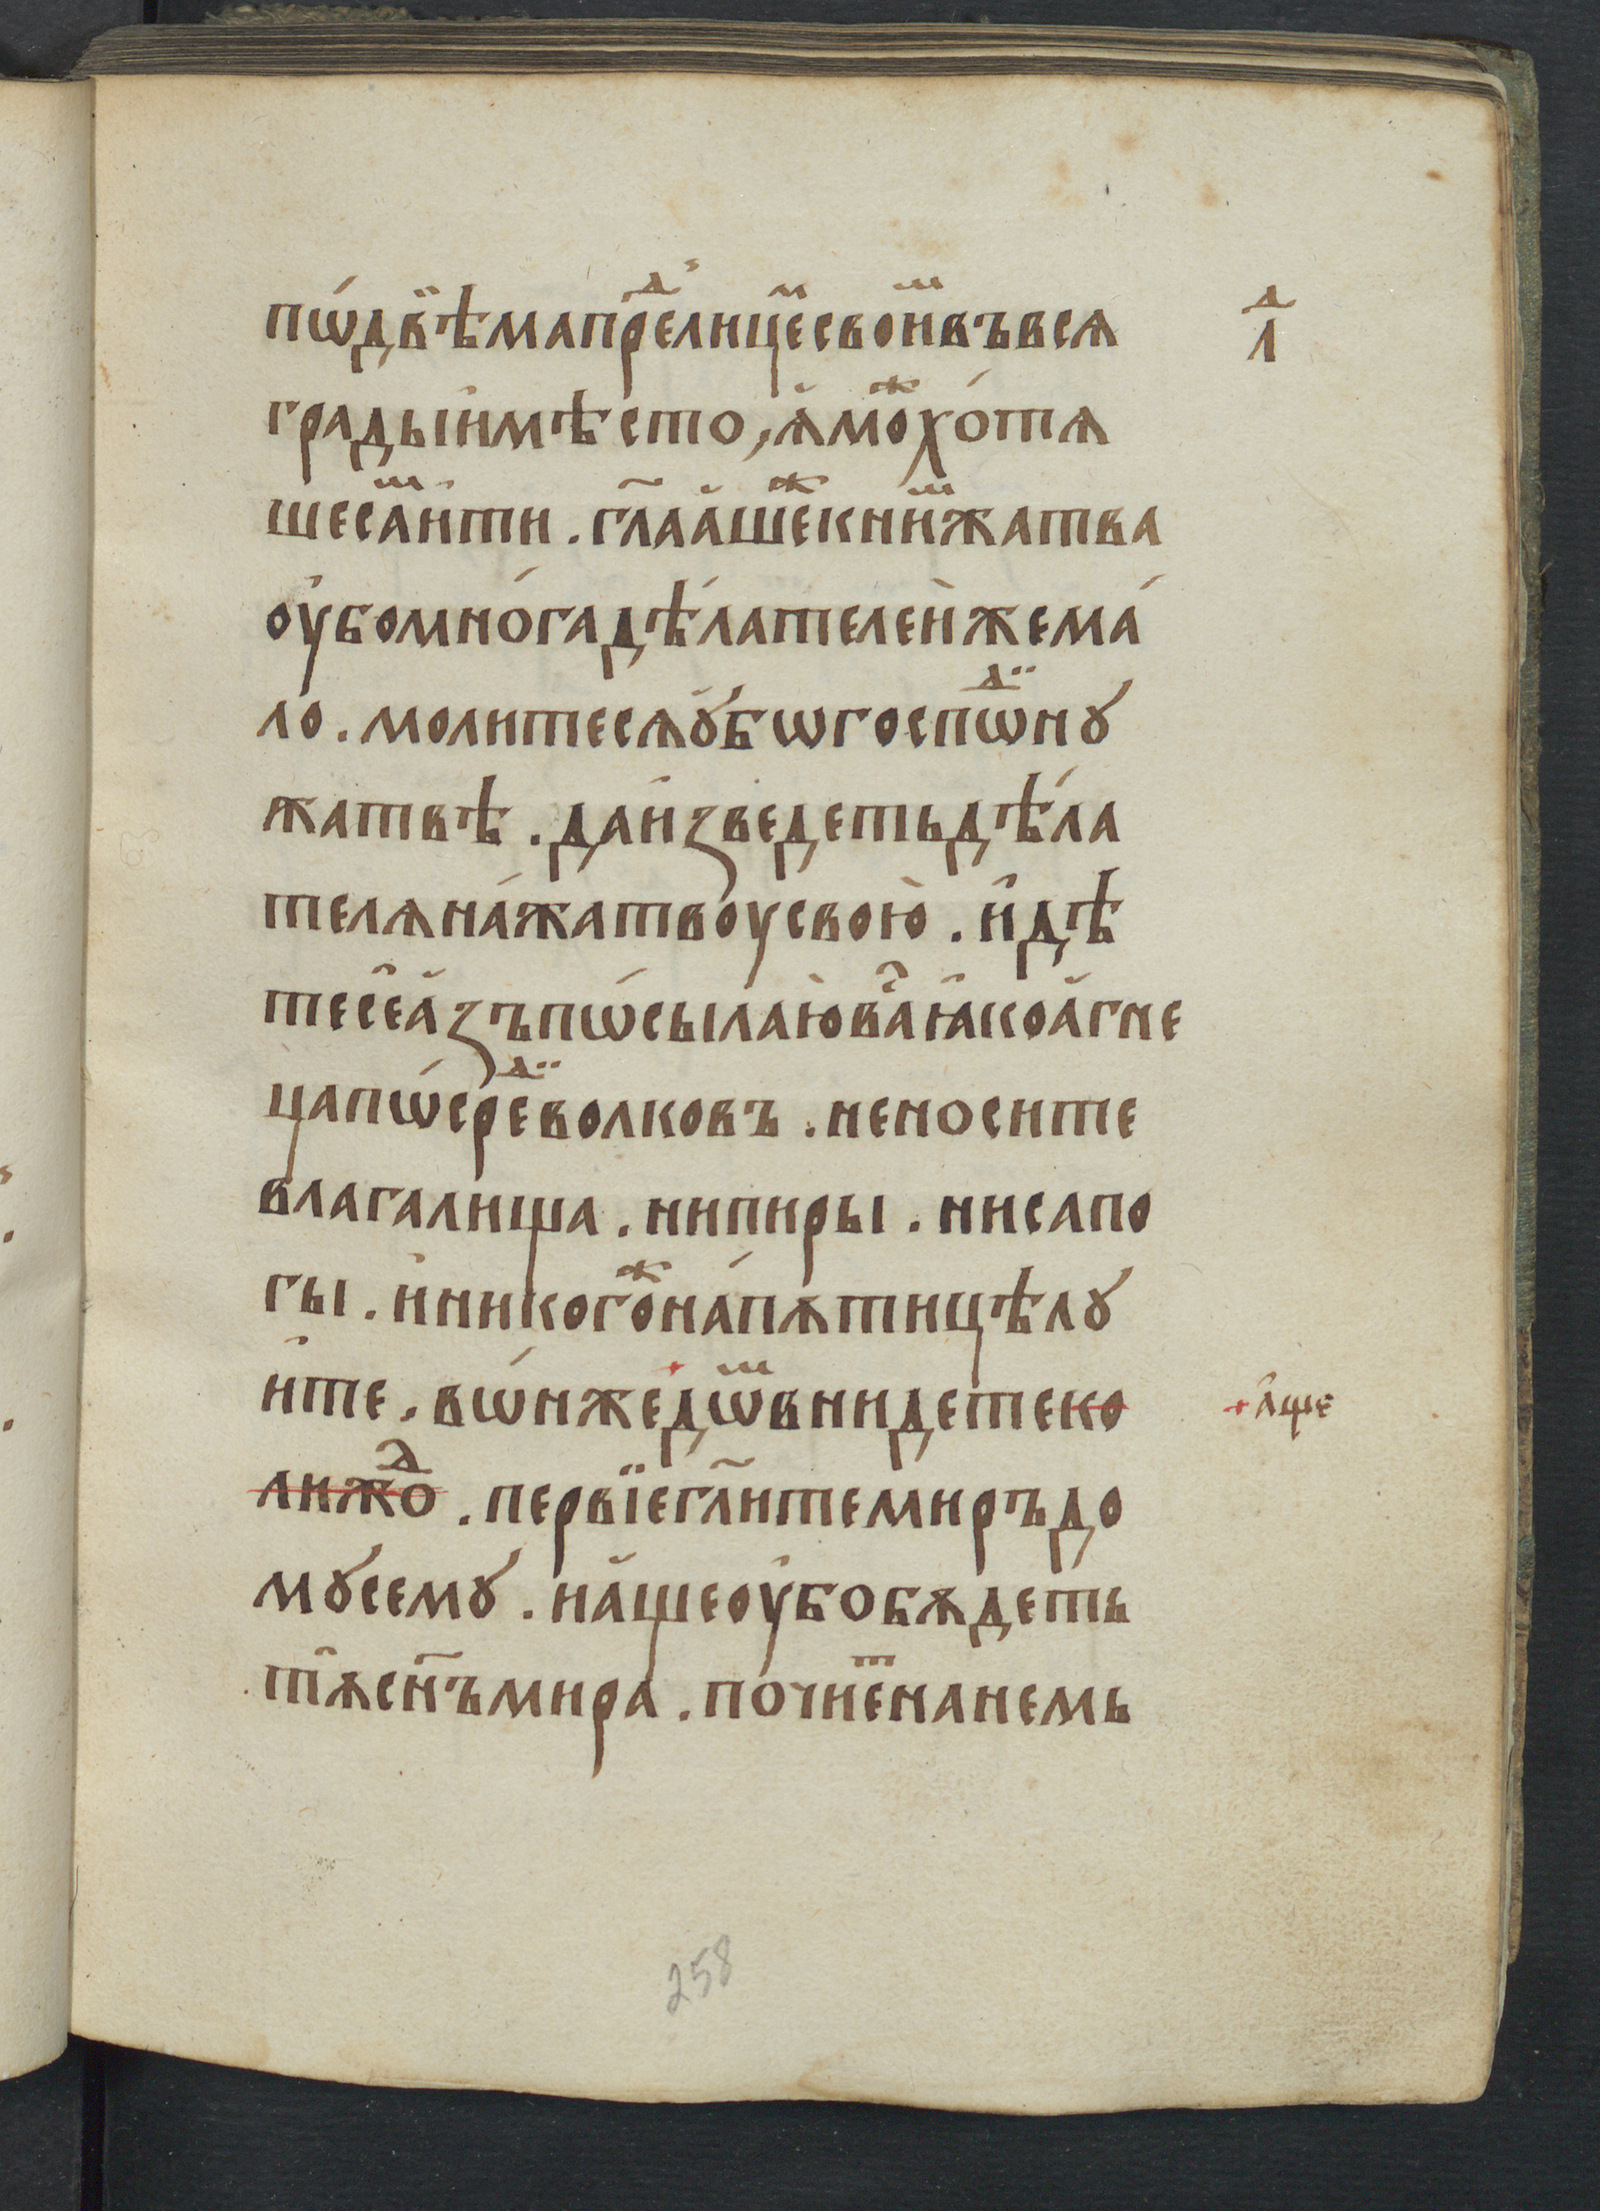 пѡ́двѣ̈мапрⷣелице́мсвоиⷨвъвсѧ
л҃ⷣ
градыи҆мѣсто, ꙗ҆моⷤхо́тѧ
шесаⷨи҆ти . гл҃аа҆шеⷤкниⷨжатва
оу҆бомно́гадѣ́лателе́йжема́
ло . молитесѧꙋ҆бѡгоспѡⷣнꙋ
жатвѣ . даи҆зведетьдѣ́ла
телѧна́жатвоусвою̀ . и҆дѣ
тесе҆а҆зъпѡ́сылаю̀ваⷭ҇ꙗ҆коа҆гне
цапѡ́среⷣволковъ . неносите
влагалища . нипиры . нисапо
гы . и҆никогоⷤна́пѧтицѣлꙋ
и҆те . вѡ́нже+дѡⷨвнидетеко
+а҆ще
лижⷣо . первїегл҃итемиръдо
мꙋсемꙋ . иа҆щеоу҆бобѫдеть
тꙋ҆сн҃ъмира . почиеⷮнанемь
258